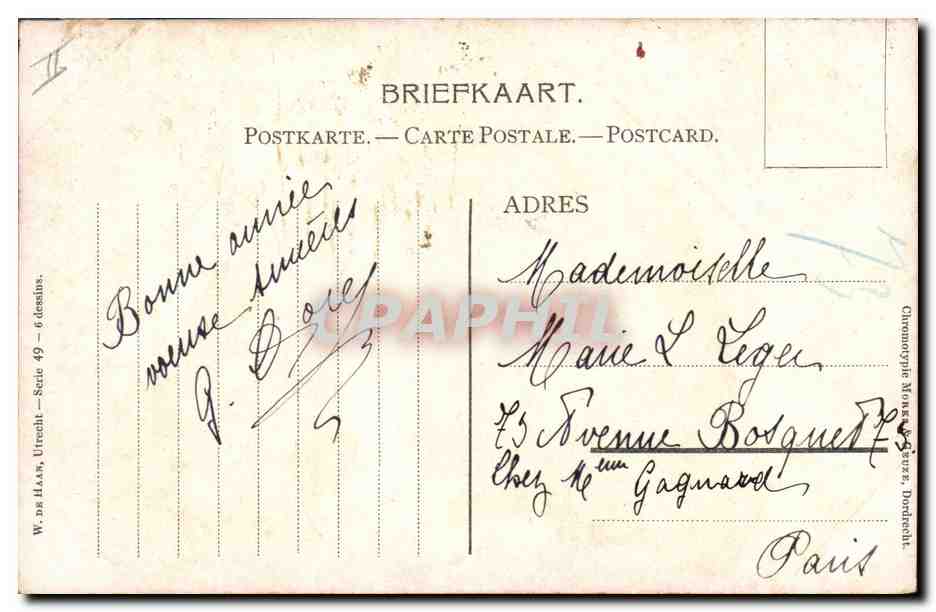 II
BRIEFKAART.
POSTKARTE. — CARTE POSTALE. — POSTCARD.
Bonne année
voeuse sincères
G.
ADRES
Mademoiselle
Marie L Leger
73 Avenue Bosquet 73
Chez Mme Gagnard
Paris
W. DE HAAN, Utrecht — Serie 49 — 6 dessins.
Chromotypie MORKS & GEUZE, Dordrecht.
CPAPHIL